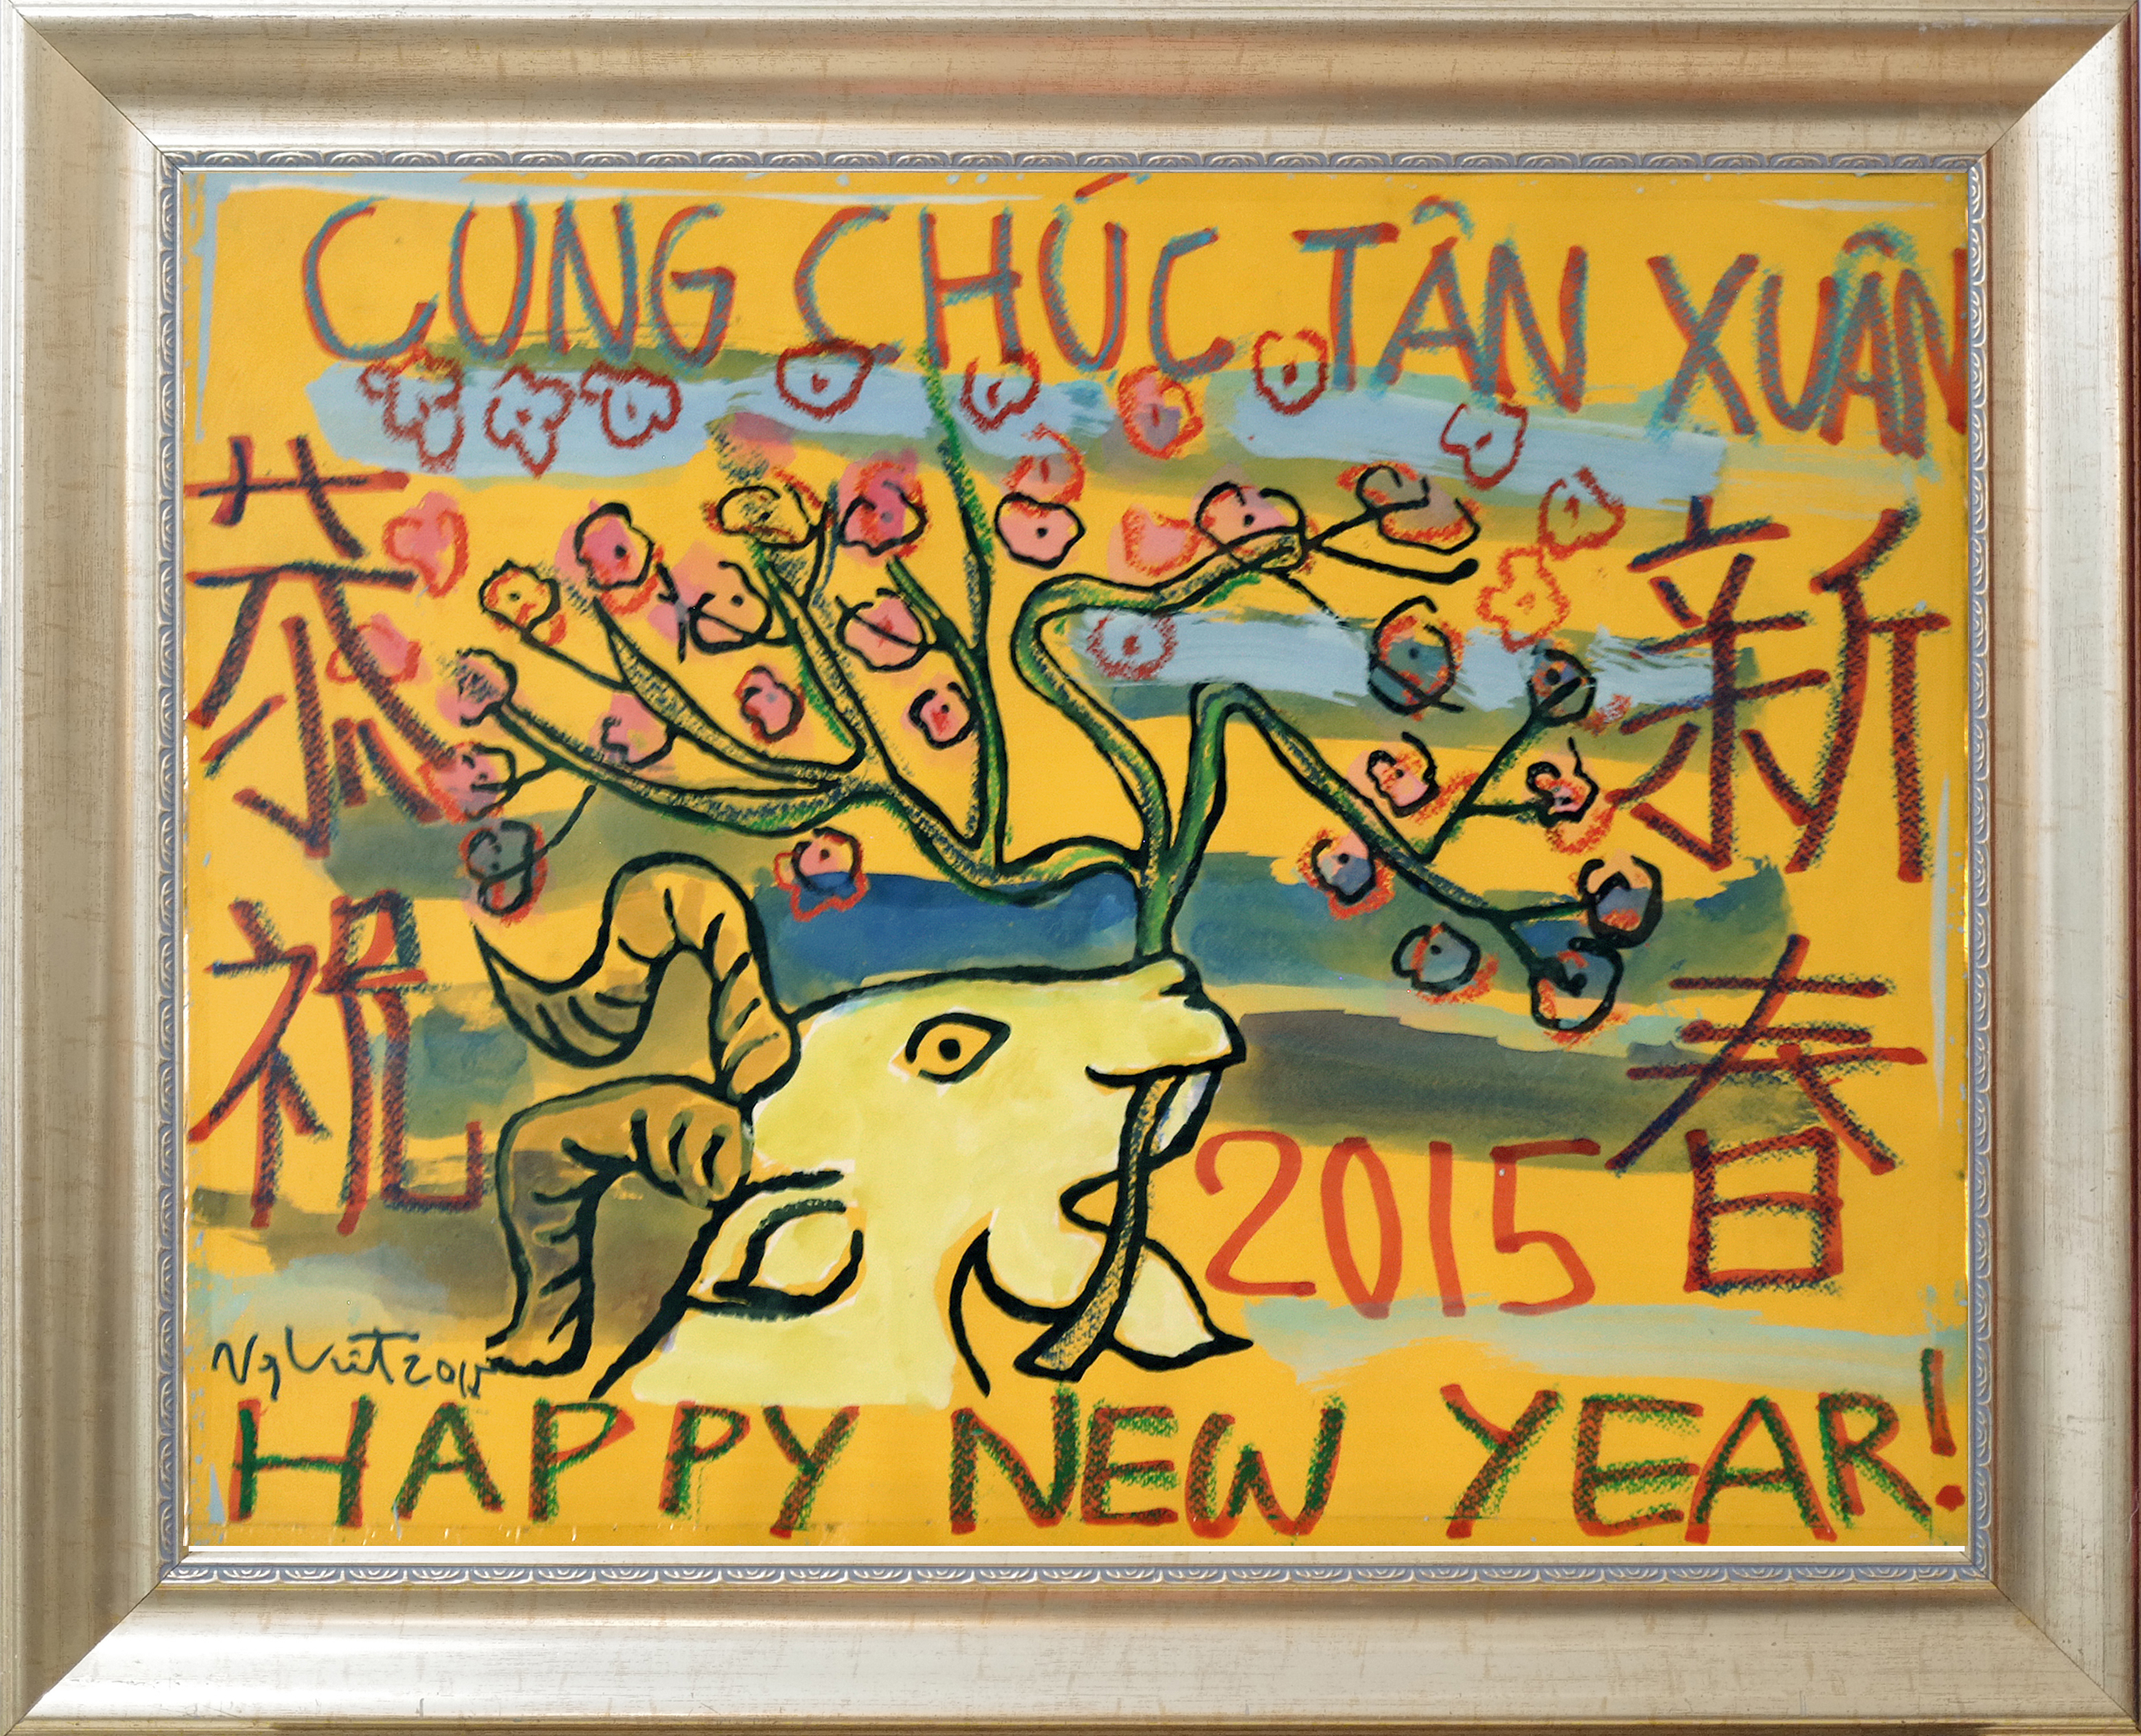 CUNG CHÚC TÂN XUÂN
恭祝
新春
2015
Ng Việt 2015
HAPPY NEW YEAR!